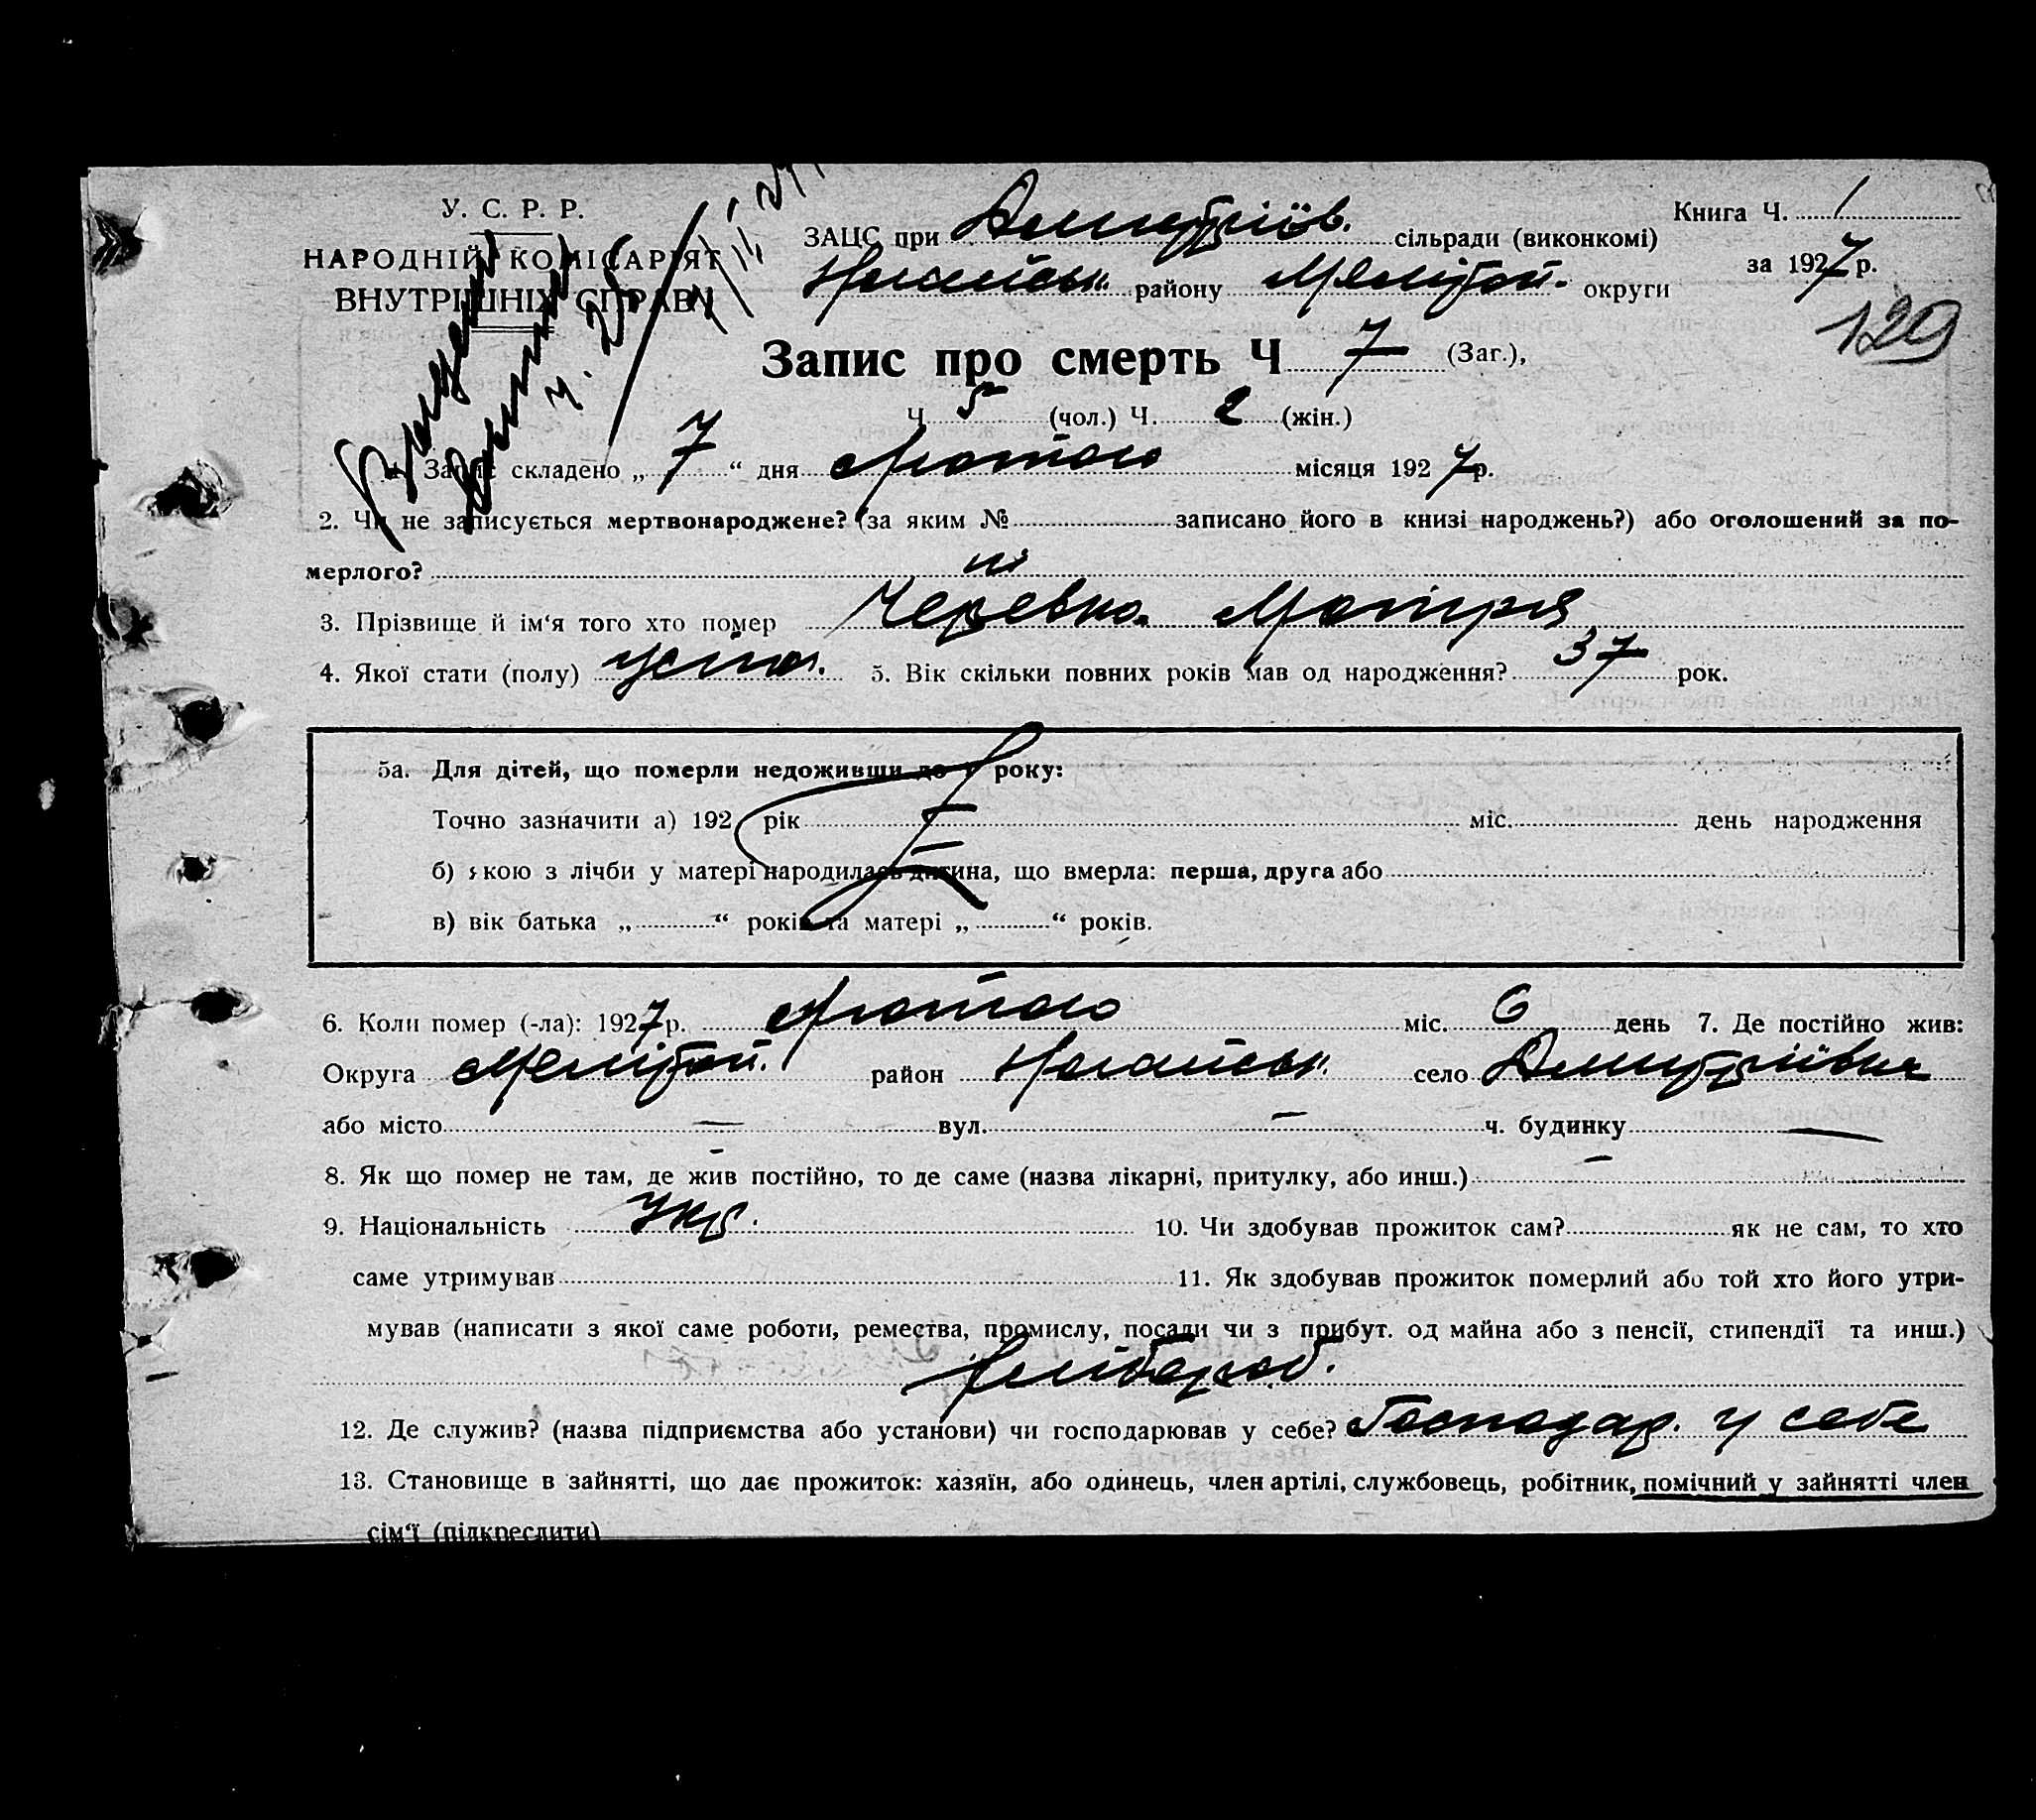 У. С. Р. Р.
НАРОДНІЙ КОМІСАРІЯТ
ВНУТРІШНІХ СПРАВ
ЗАЦС при Дмитріїв. сільради (виконкомі)
Ногайськ. району Мелітоп. округи
Книга Ч. 1
за 1927 р.
129
Запис про смерть Ч 7 (Заг.),
Ч 5 (чол.) Ч. 2 (жін.)
Запис складено „ 7 “ дня Лютого місяця 1927 р.
2. Чи не записується мертвонароджене? (за яким № записано його в книзі народжень?) або оголошений за по-
мерлого? ні
3. Прізвище й ім‘я того хто помер Черевко
4. Якої стати (полу) 5. Вік скільки повних років мав од народження? 37 рок.
5а. Для дітей, що померли недоживши до 1 року:
Точно зазначити а) 192 рік міс. день народження
б) якою з лічби у матері народилась дитина, що вмерла: перша, друга або
в) вік батька „ “ років та матері „ “ років.
6. Коли помер (-ла): 1927 р. Лютого міс. 6 день 7. Де постійно жив:
Округа Мелітоп. район Ногайськ. село Дмитріївка
або місто — вул. — ч. будинку —
8. Як що помер не там, де жив постійно, то де саме (назва лікарні, притулку, або инш.) —
9. Національність Укр. 10. Чи здобував прожиток сам? як не сам, то хто
саме утримував 11. Як здобував прожиток померлий або той хто його утри-
мував (написати з якої саме роботи, ремества, промислу, посади чи з прибут. од майна або з пенсії, стипендії та инш.)
Хлібороб.
12. Де служив? (назва підприємства або установи) чи господарював у себе? Господар. у себе
13. Становище в зайнятті, що дає прожиток: хазяїн, або одинець, член артілі, службовець, робітник, помічний у зайнятті член
сім‘ї (підкреслити)